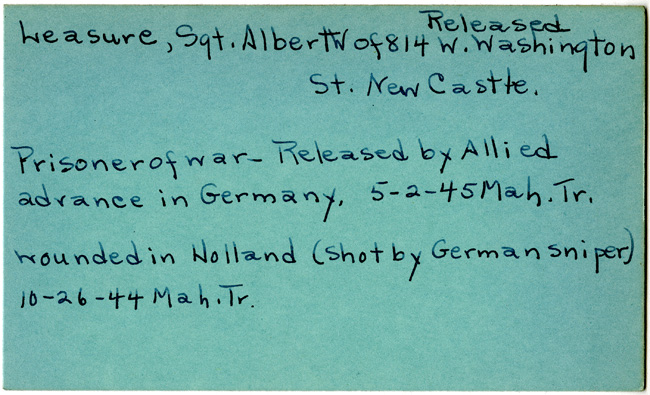 Released
Leasure, Sgt. Albert W of 814 W. Washington
St. New Castle.
Prisoner of war- Released by Allied
advance in Germany. 5-2-45 Mah. Tr.
wounded in Holland (shot by German sniper)
10-26-44 Mah. Tr.